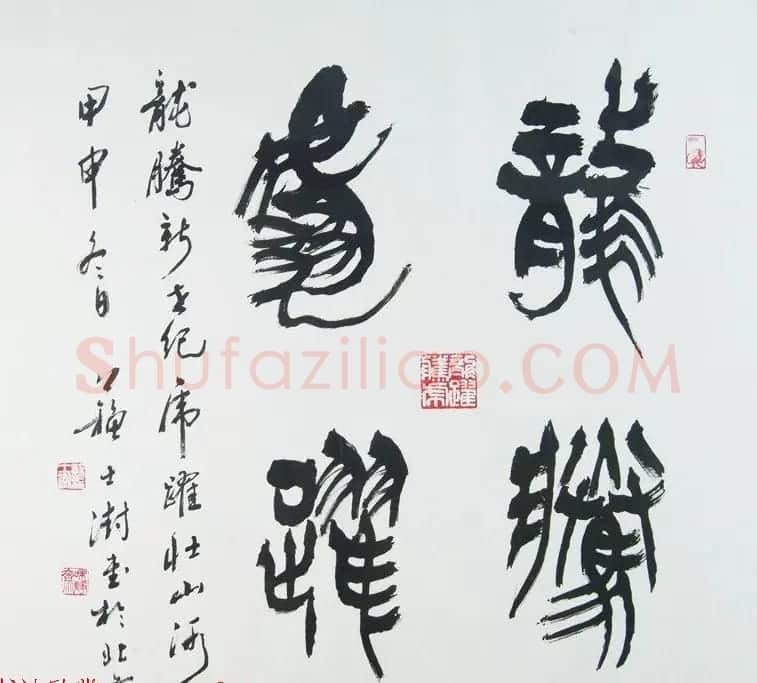 龍騰
虎躍
龍騰新世紀虎躍壮山河
甲申冬日蘇士澍书於北
Shufaziliao.COM